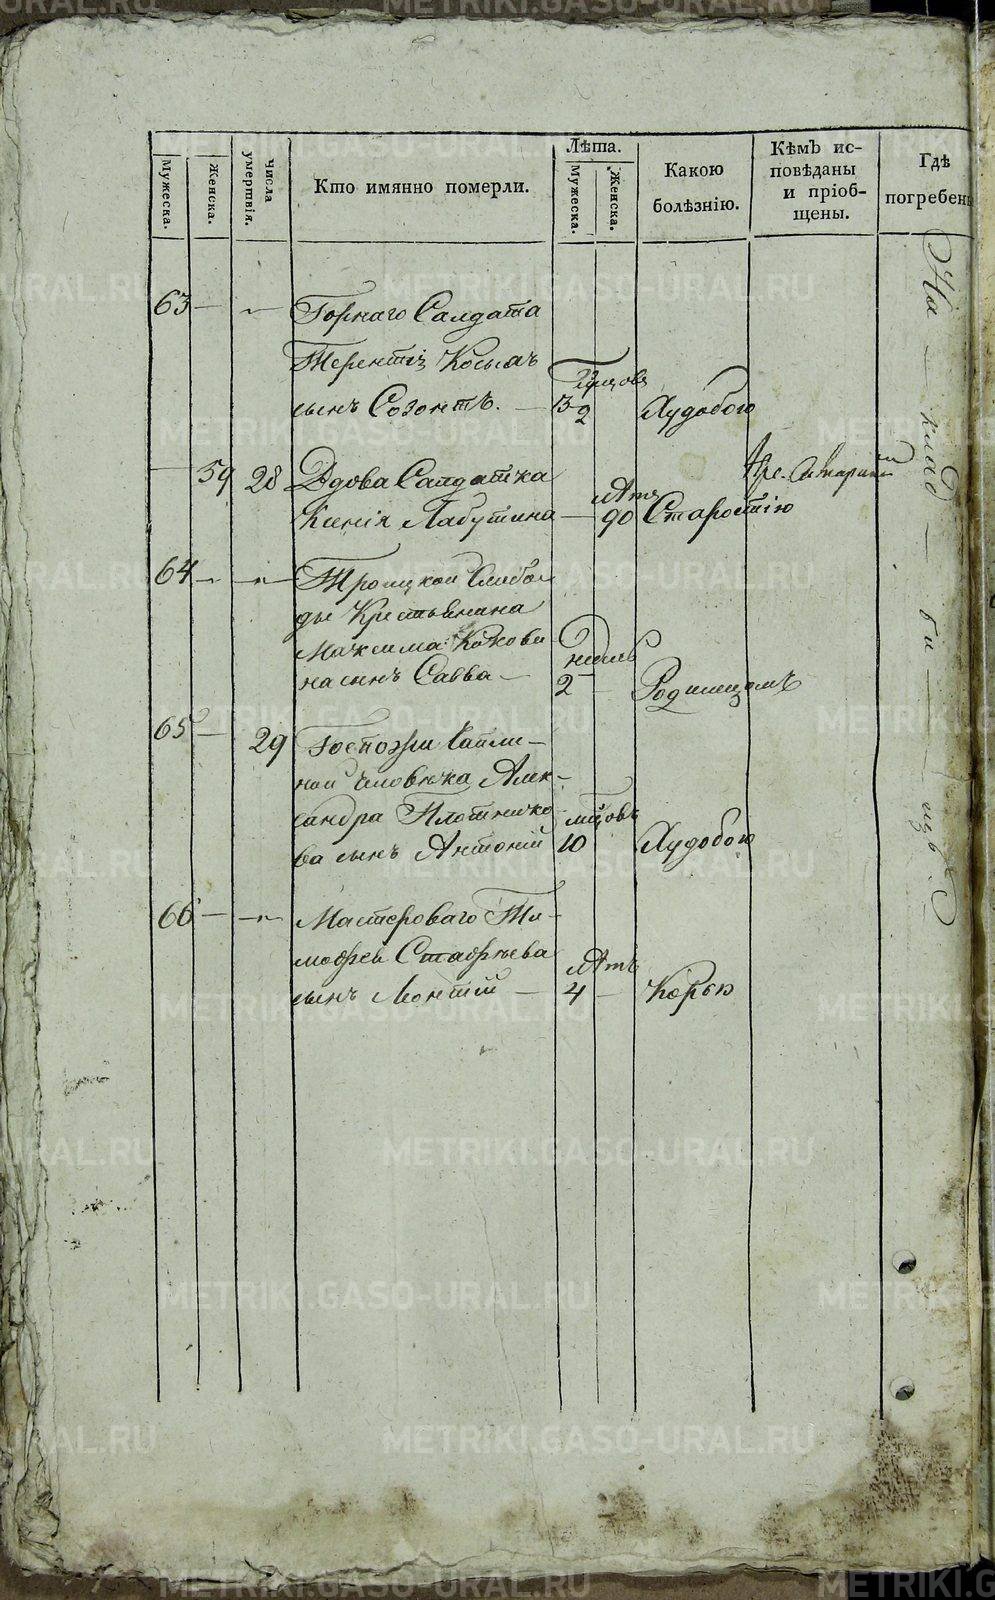 Мужеска.
Женска.
Числа умертвія.
Кто имянно померли.
Лѣта.
Мужеска.
Женска.
Какою
болѣзнію.
Кѣмъ ис-
повѣданы
и пріоб-
щены.
Гдѣ
погребены
63 — Горнаго Салдата
Терентія
сынъ Созонтъ. — 2 Худобою
— 59 28 Вдова Салдатка
Ксенія Лабутина — лѣтъ 90 Старостію
64 — Троицкой Слобо
ды Крестьянина
Максима Кокови
на сынъ Савва — недель 2 — Родимцомъ
65 — 29 Госпожи
ной человѣка Алек-
сандра Плотнико
ва сынъ Антоній мцовъ 10 Худобою
66 — Мастероваго Ти-
мофея Стафѣева
сынъ Леонтій — лѣтъ 4 — Корью
На — клад — би — щѣ
METRIKI.GASO-URAL.RU